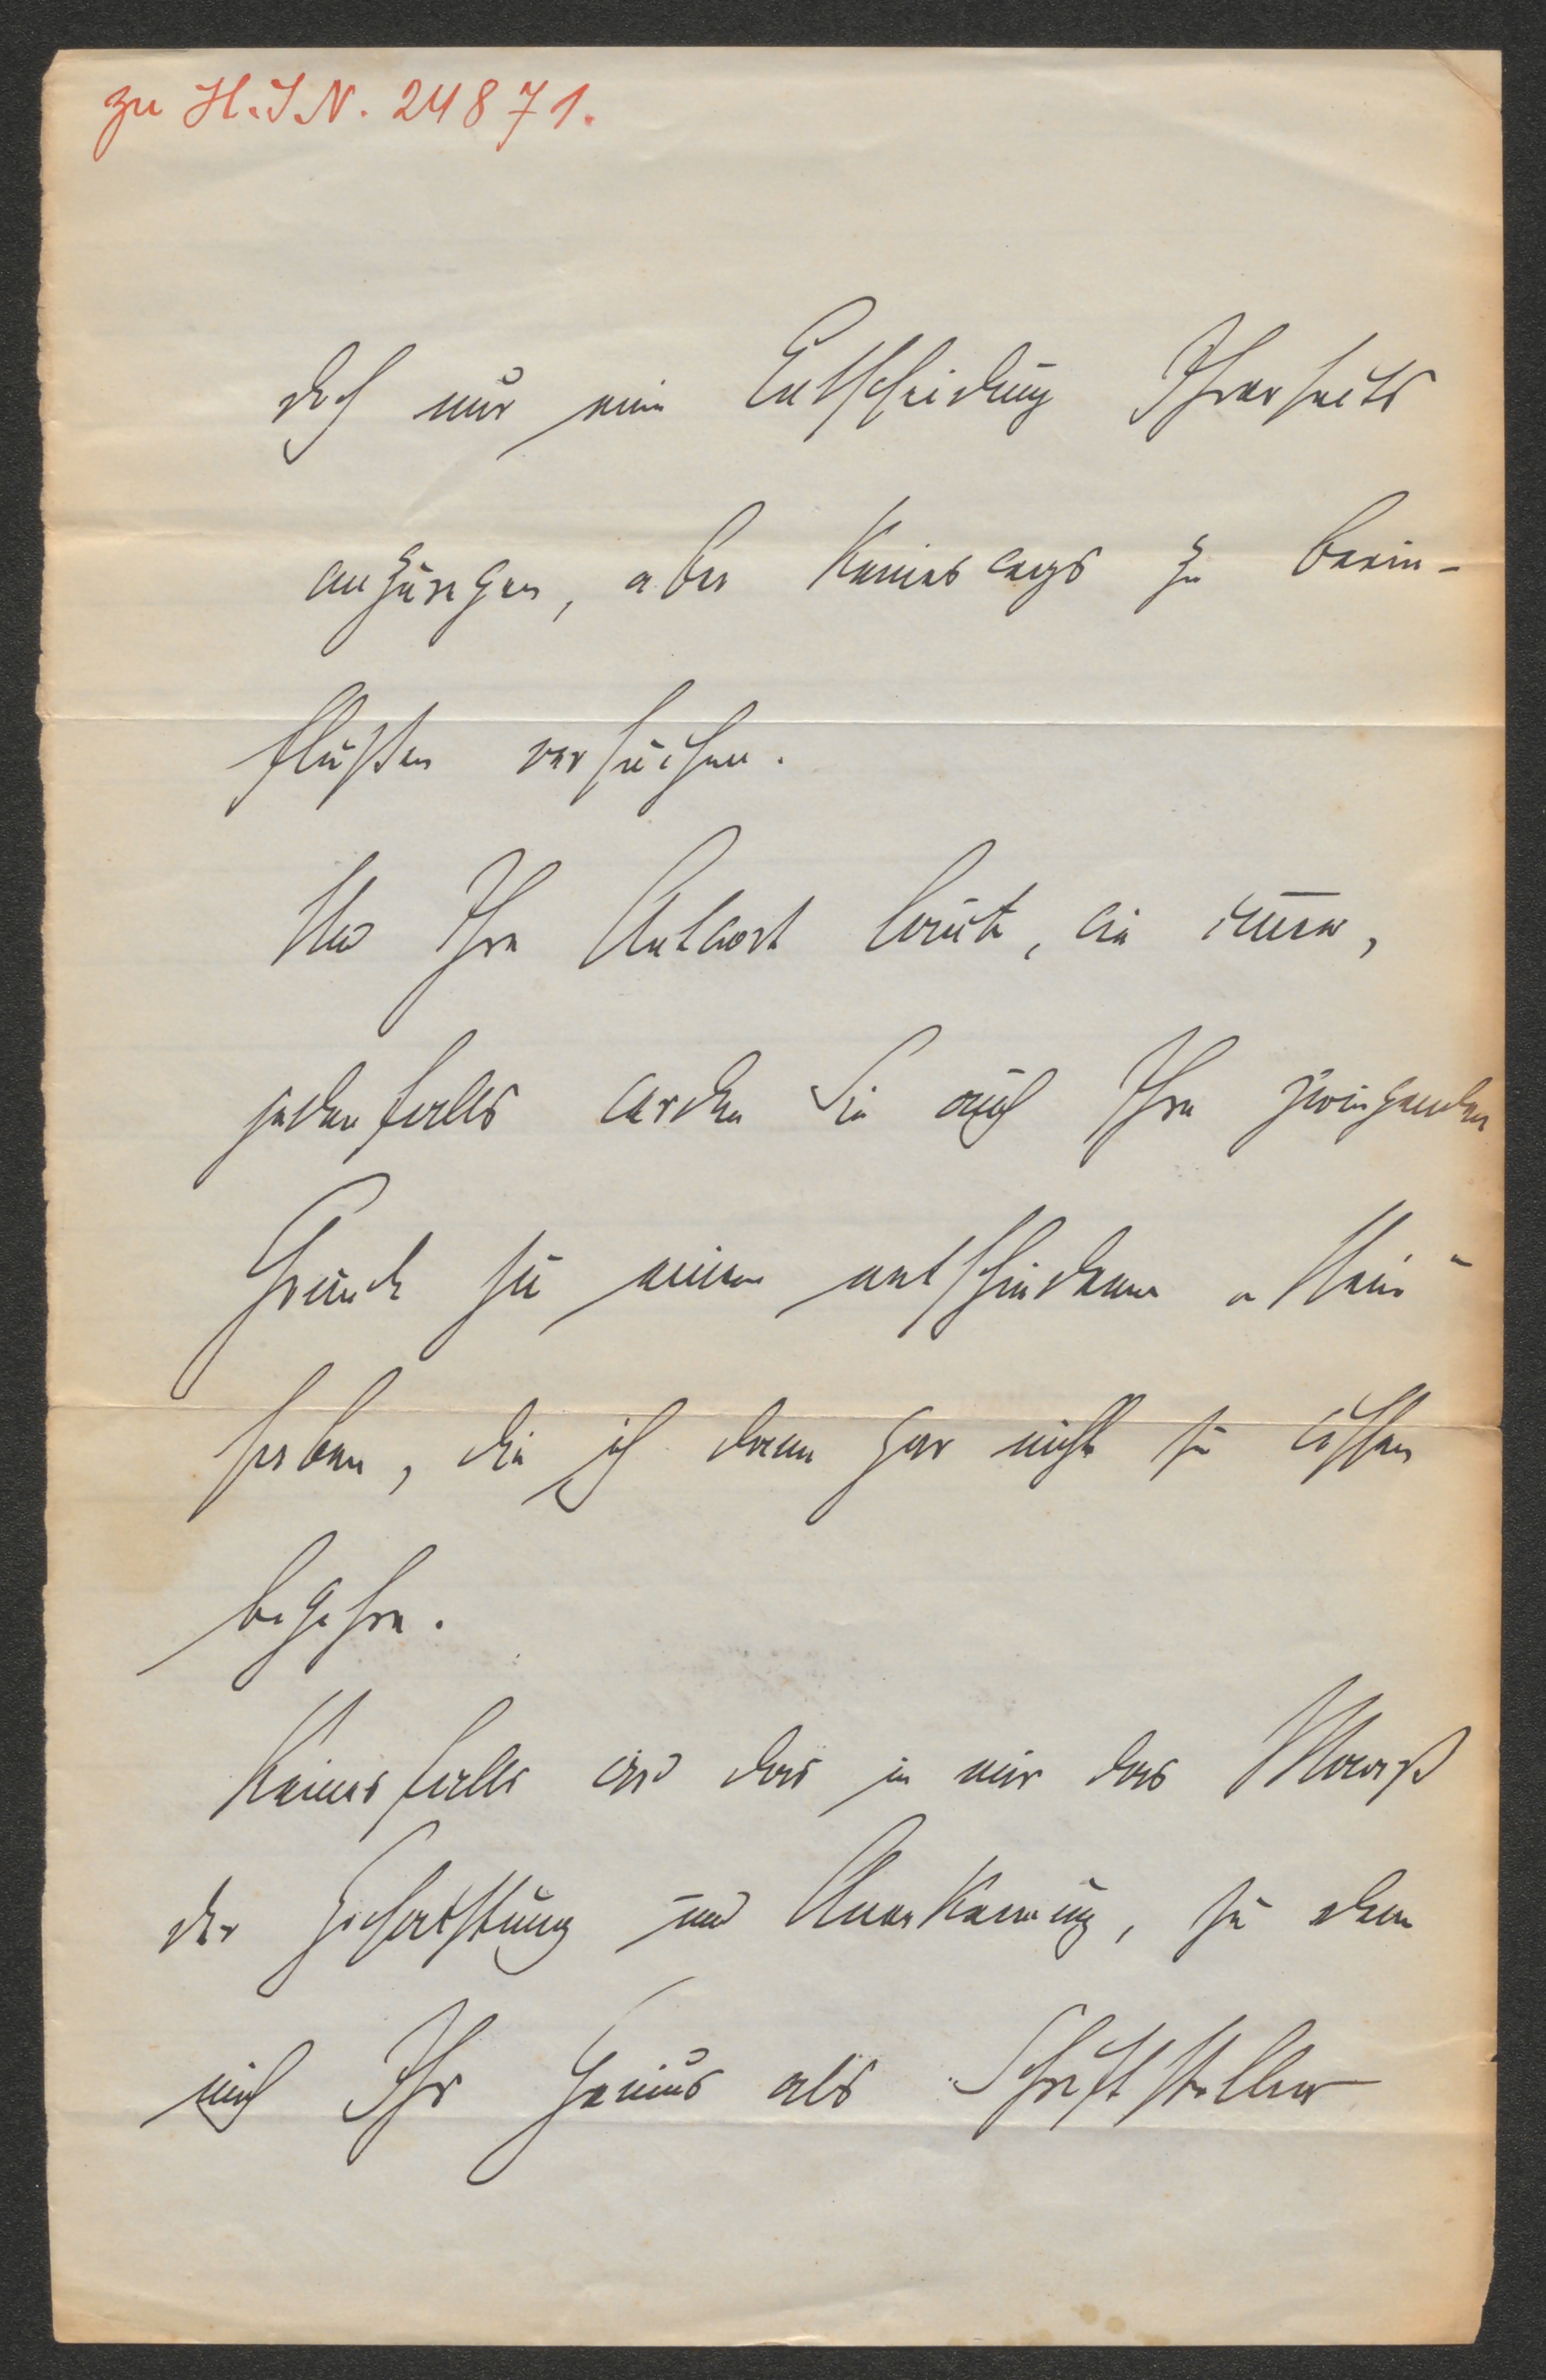 zu H.I.N. 24871.
doch nur eine Entscheidung Ihrerseits
anzuregen, aber keineswegs zu beein-
flußen versuchen.
Und Ihre Antwort laute, wie immer,
jedenfalls werden Sie auch Ihre zwingenden
Gründe zu einem entschiedenen „Nein"
haben, die ich dann gar nicht zu wissen
begehre.
Keinesfalls wird das in mir das Maaß
der Hochachtung und Anerkennung, zu dem
mich Ihr Genius als Schriftsteller